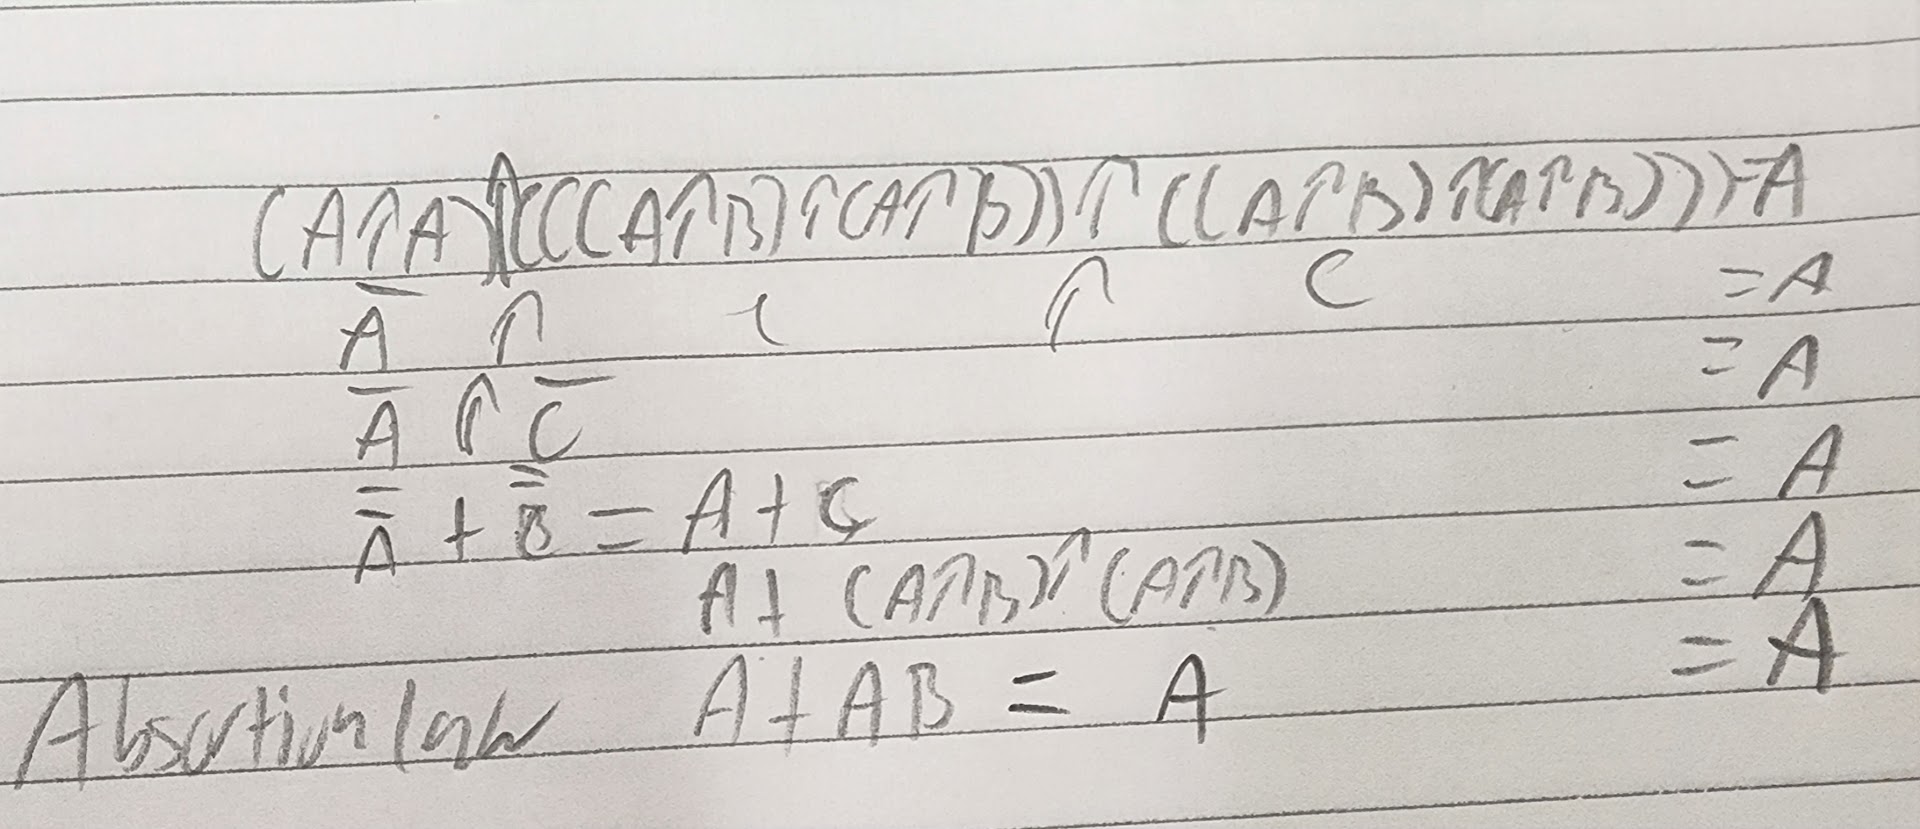 (A↑A)↑(((A↑B)↑(A↑B))↑((A↑B)↑(A↑B)))=A
A̅ ↑ C ↑ C = A
A̅ ↑ C̅ = A
A̿ + B̿ = A + C = A
A + (A↑B)↑(A↑B) = A
Absortion law A + AB = A = A